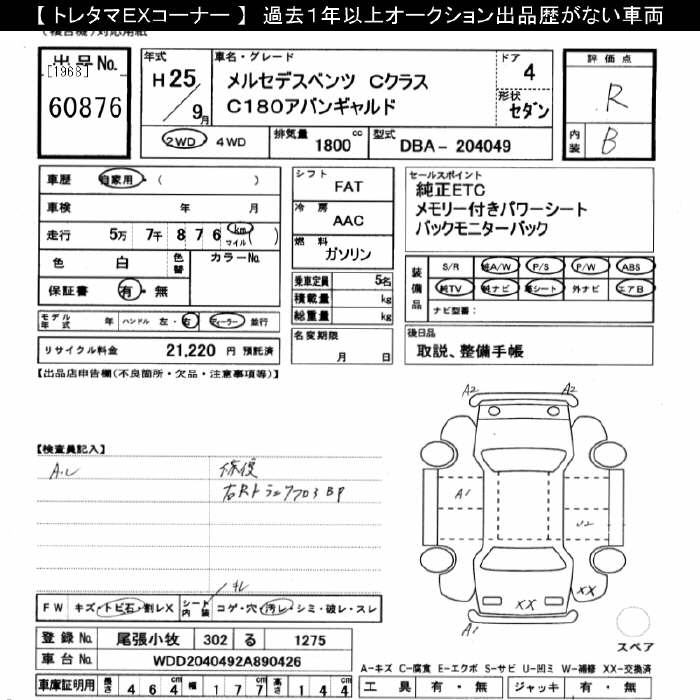 【 トレタマEXコーナー 】 過去１年以上オークション出品歴がない車両
出品No.
[1968]
60876
年式
H 25 / 9月
車名・グレード
メルセデスベンツ Cクラス
C180アバンギャルド
ドア
4
形状
セダン
評価点
R
内装
B
2WD ・ 4WD
排気量 1800 cc
型式 DBA- 204049
車歴 自家用・( )
車検 年 月
走行 5万 7千 8 7 6 km マイル ( )
色 白 色替 カラーNo.
保証書 有・無
シフト FAT
冷房 AAC
燃料 ガソリン
乗車定員 5名
積載量 kg
総重量 kg
セールスポイント
純正ETC
メモリー付きパワーシート
バックモニターバック
装備品
S/R 純A/W P/S P/W ABS
純TV 純ナビ 革シート 外ナビ エアB
ナビ型番:
モデル年式 年 ハンドル 左・右 ディーラー 並行
リサイクル料金 21,220 円 預託済
名変期限
月 日
後日品
取説、整備手帳
【出品店申告欄(不良箇所・欠品・注意事項等)】
【検査員記入】
修復
A2 A2
A1
U2
XX XX
A1
スペア
FW キズ・トビ石・割レX シート 内装 コゲ・穴・汚レ・シミ・破レ・スレ
登録No. 尾張小牧 302 る 1275
車台No. WDD2040492A890426
車庫証明用 長さ 4 6 4 cm 幅 1 7 7 cm 高さ 1 4 4 cm
A-キズ C-腐食 E-エクボ S-サビ U-凹ミ W-補修 XX-交換済
工具 有・無 ジャッキ 有・無